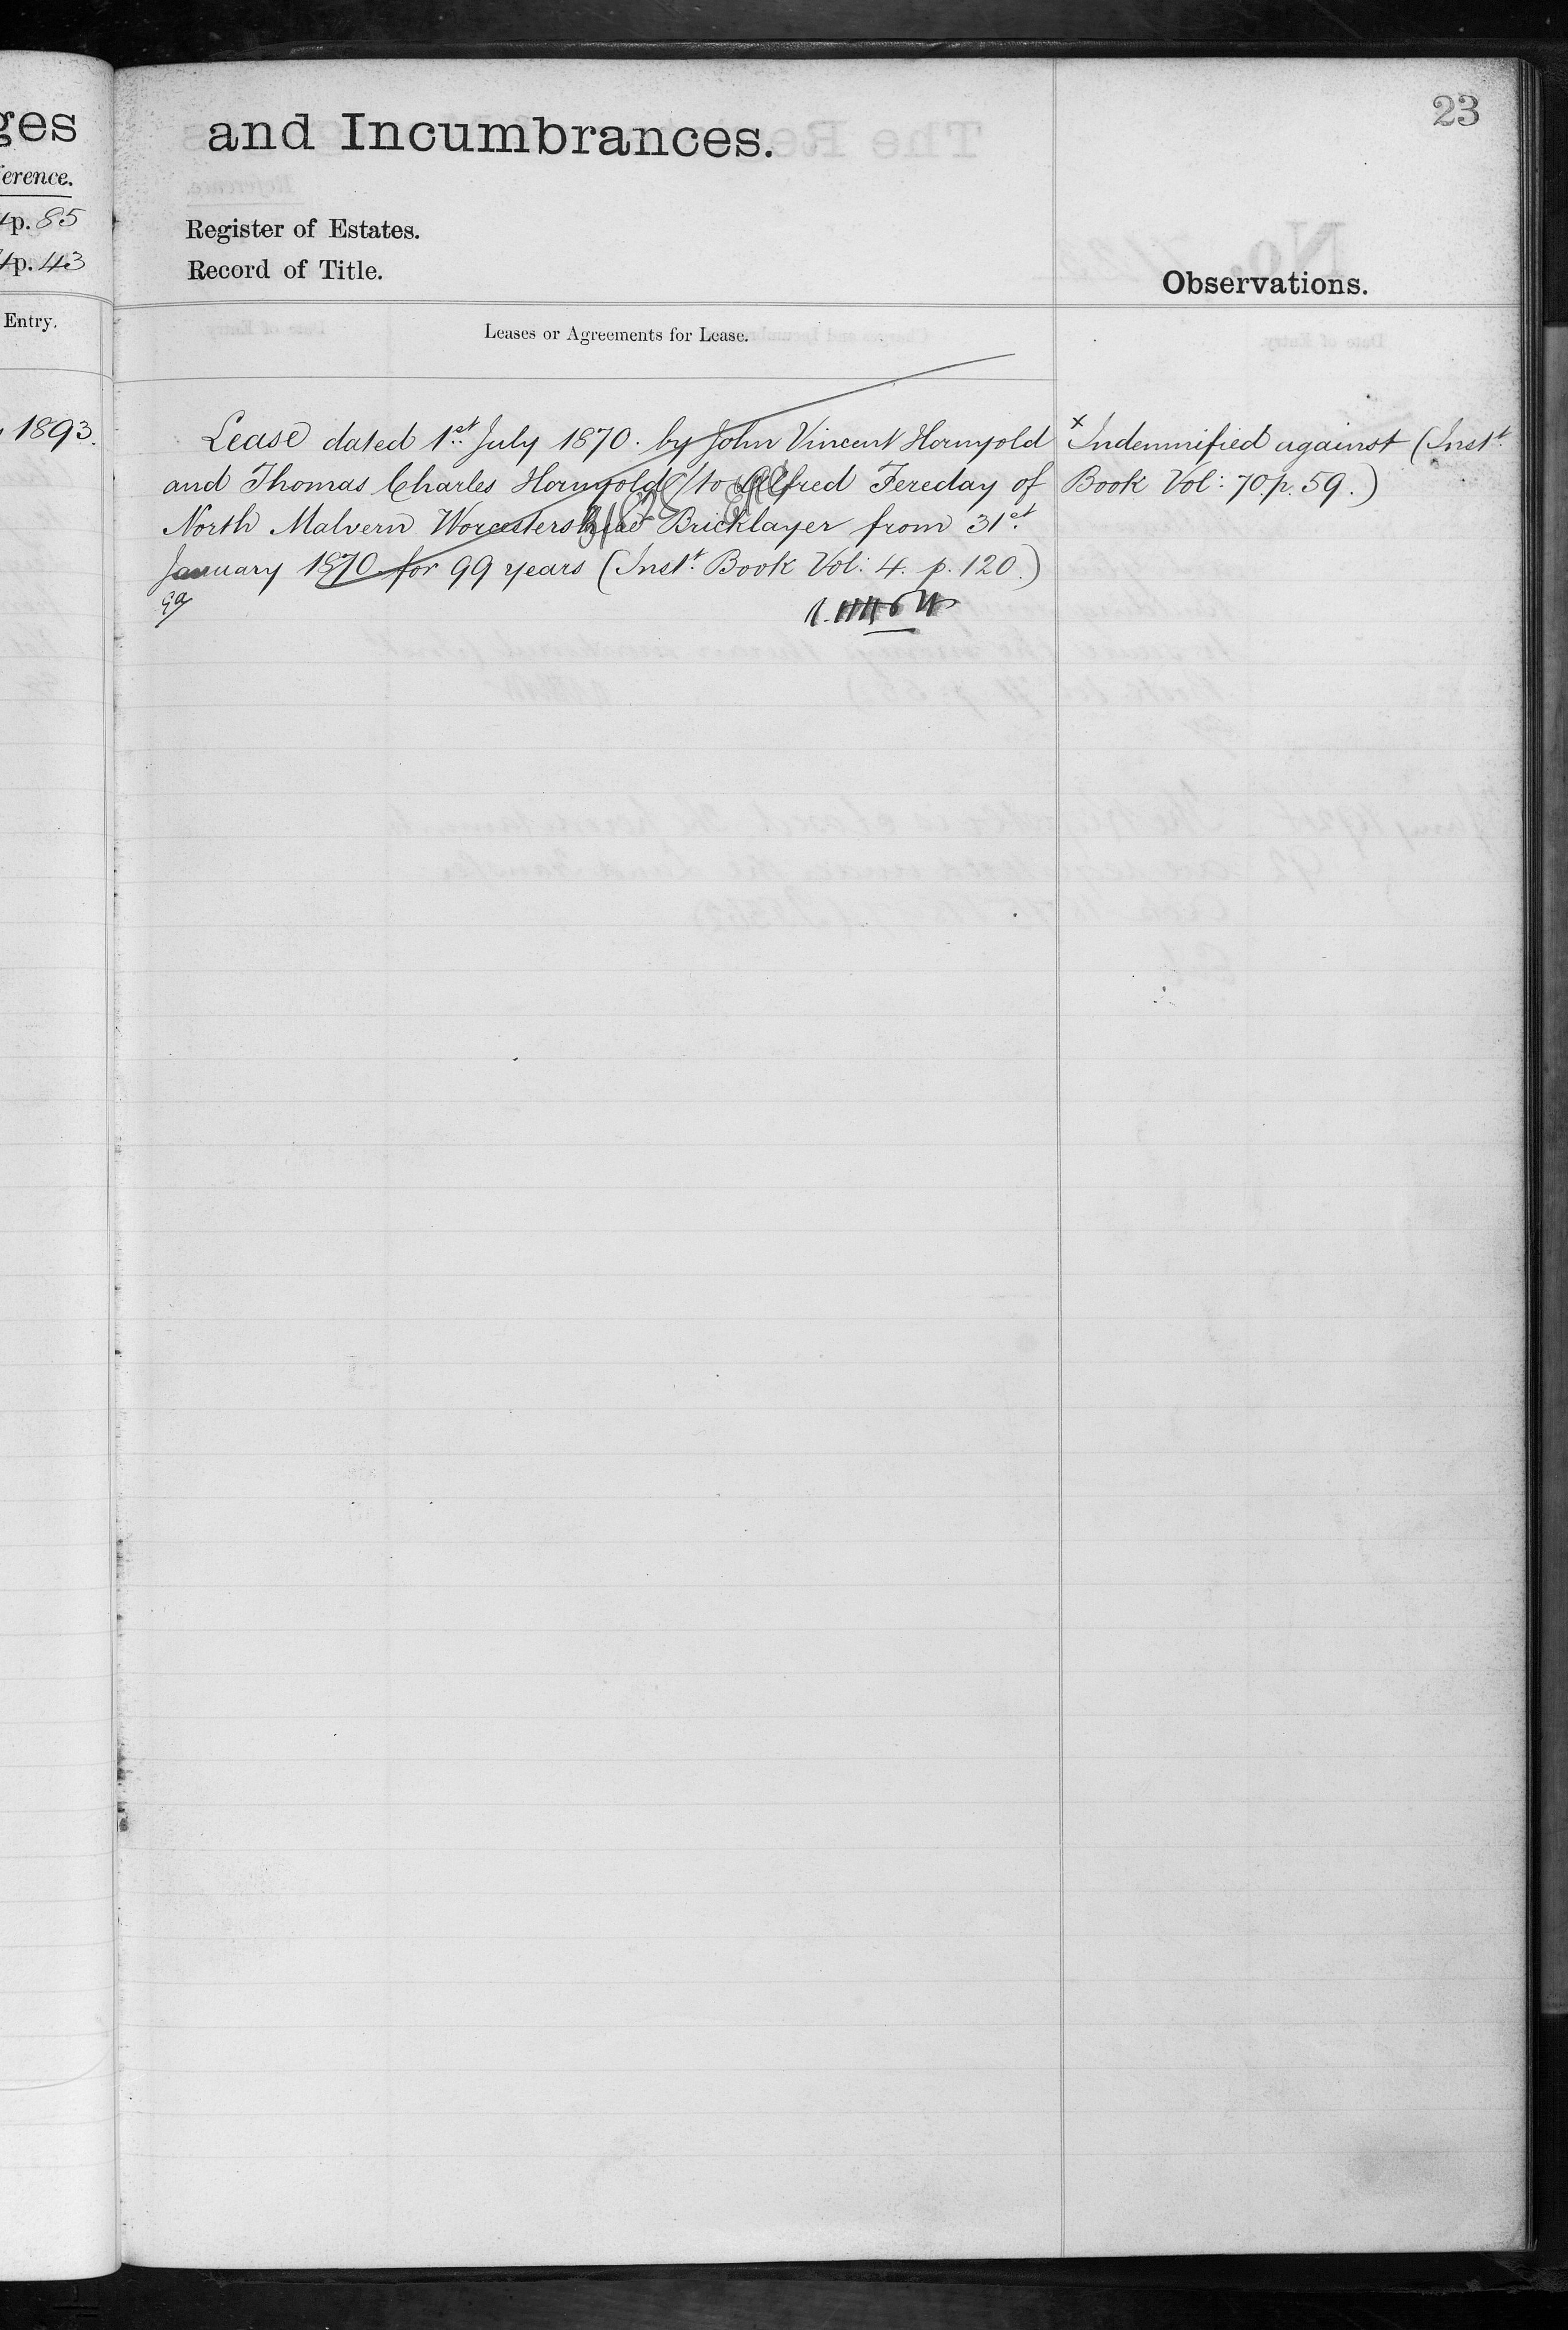 ges
erence.
p. 85
p. 43
Entry.
1893.
23
and Incumbrances.
Register of Estates.
Record of Title.
Observations.
Leases or Agreements for Lease.
Lease dated 1st July 1870 by John Vincent Hornyold
and Thomas Charles Hornyold to Alfred Fereday of
North Malvern Worcestershire Bricklayer from 31st
January 1870 for 99 years (Inst. Book Vol: 4. p. 120.)
x Indemnified against (Inst.
Book Vol: 70. p. 59.)